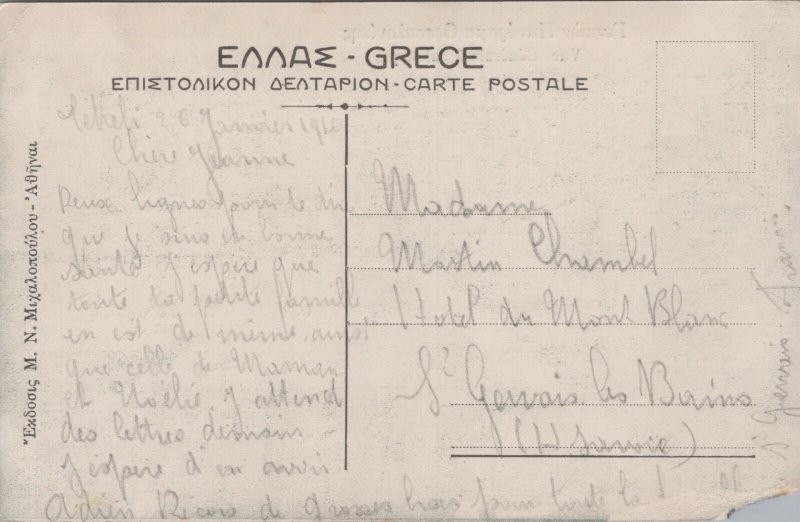 ΕΛΛΑΣ - GRECE
ΕΠΙΣΤΟΛΙΚΟΝ ΔΕΛΤΑΡΙΟΝ - CARTE POSTALE
Ἔκδοσις Μ. Ν. Μιχαλοπούλου - Ἀθῆναι
26 Janvier
Chère Jeanne
Deux lignes pour te dire
que je suis en bonne
santé j'espère que
toute ta petite famille
en est de même, ainsi
que celle de Maman
et Noélie, j'attend
des lettres demain
j'espère d'en avoir
Adieu Recois de grosses pour toute la
Madame
Martin Chambel
Hotel du Mont Blanc
St Gervais les Bains
(Hte Savoie)